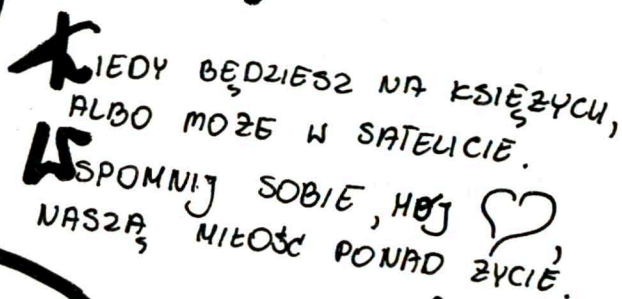 KIEDY BĘDZIESZ NA KSIĘZYCU,
ALBO MOŻE W SATELICIE.
WSPOMNIJ SOBIE, MÓJ ♡,
NASZĄ MIŁOŚĆ PONAD ŻYCIE.